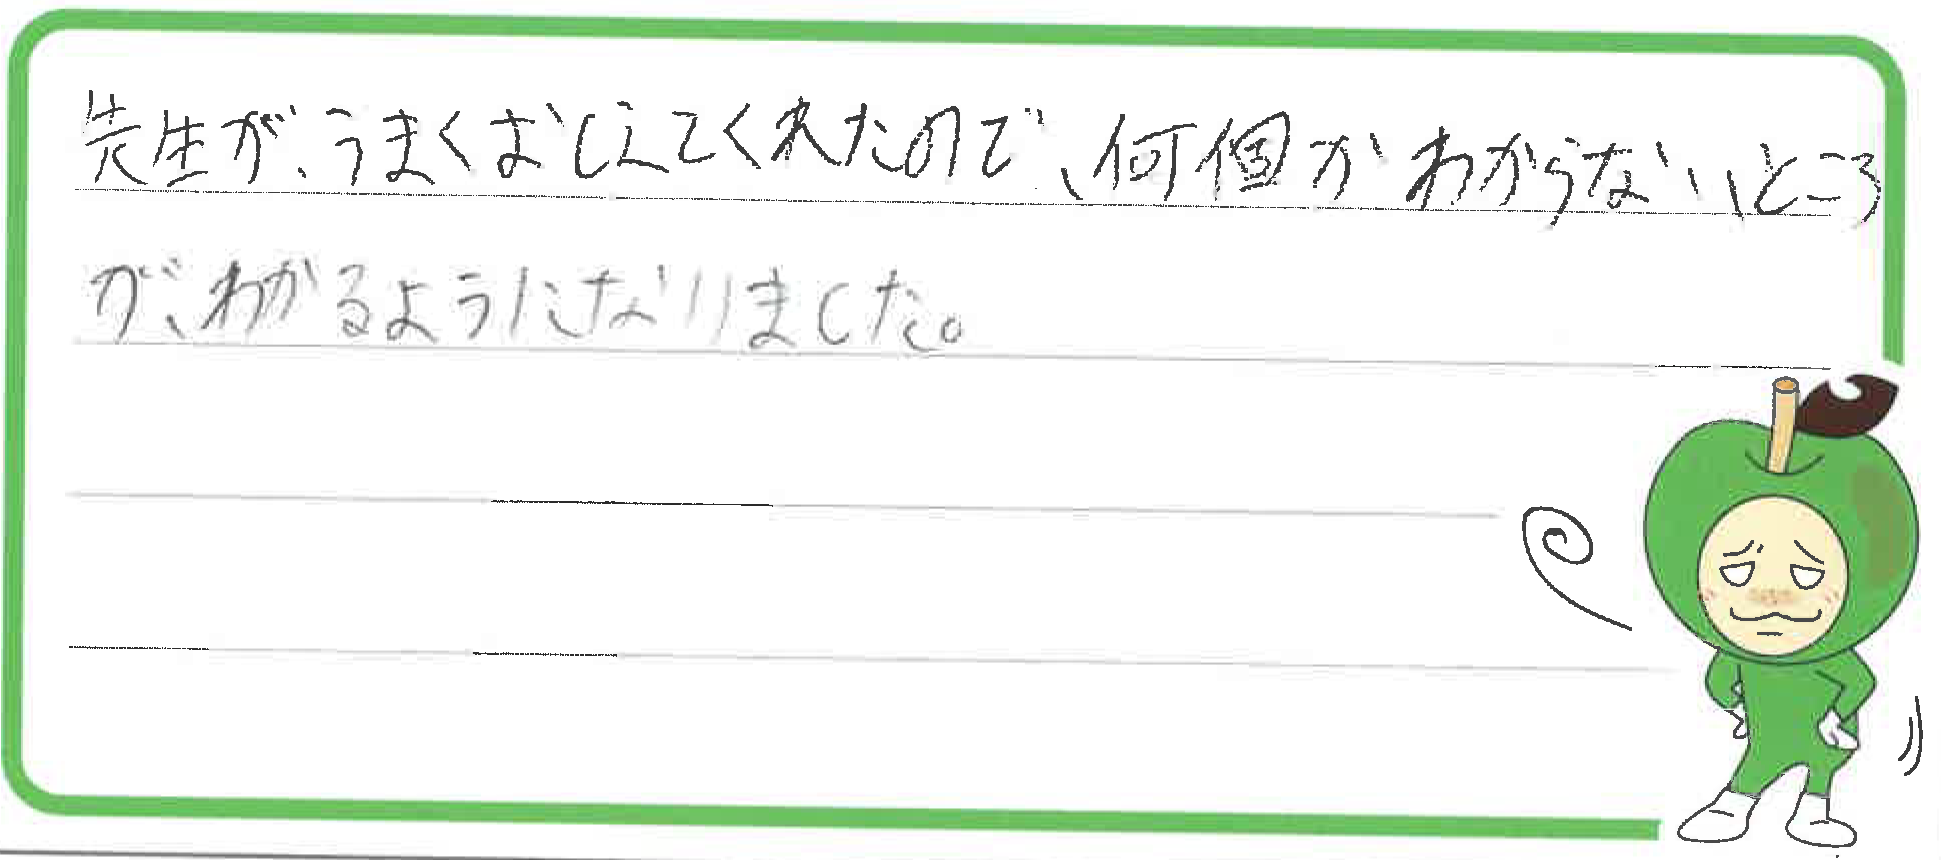 先生が、うまくおしえてくれたので、何個かわからないところ
が、わかるようになりました。